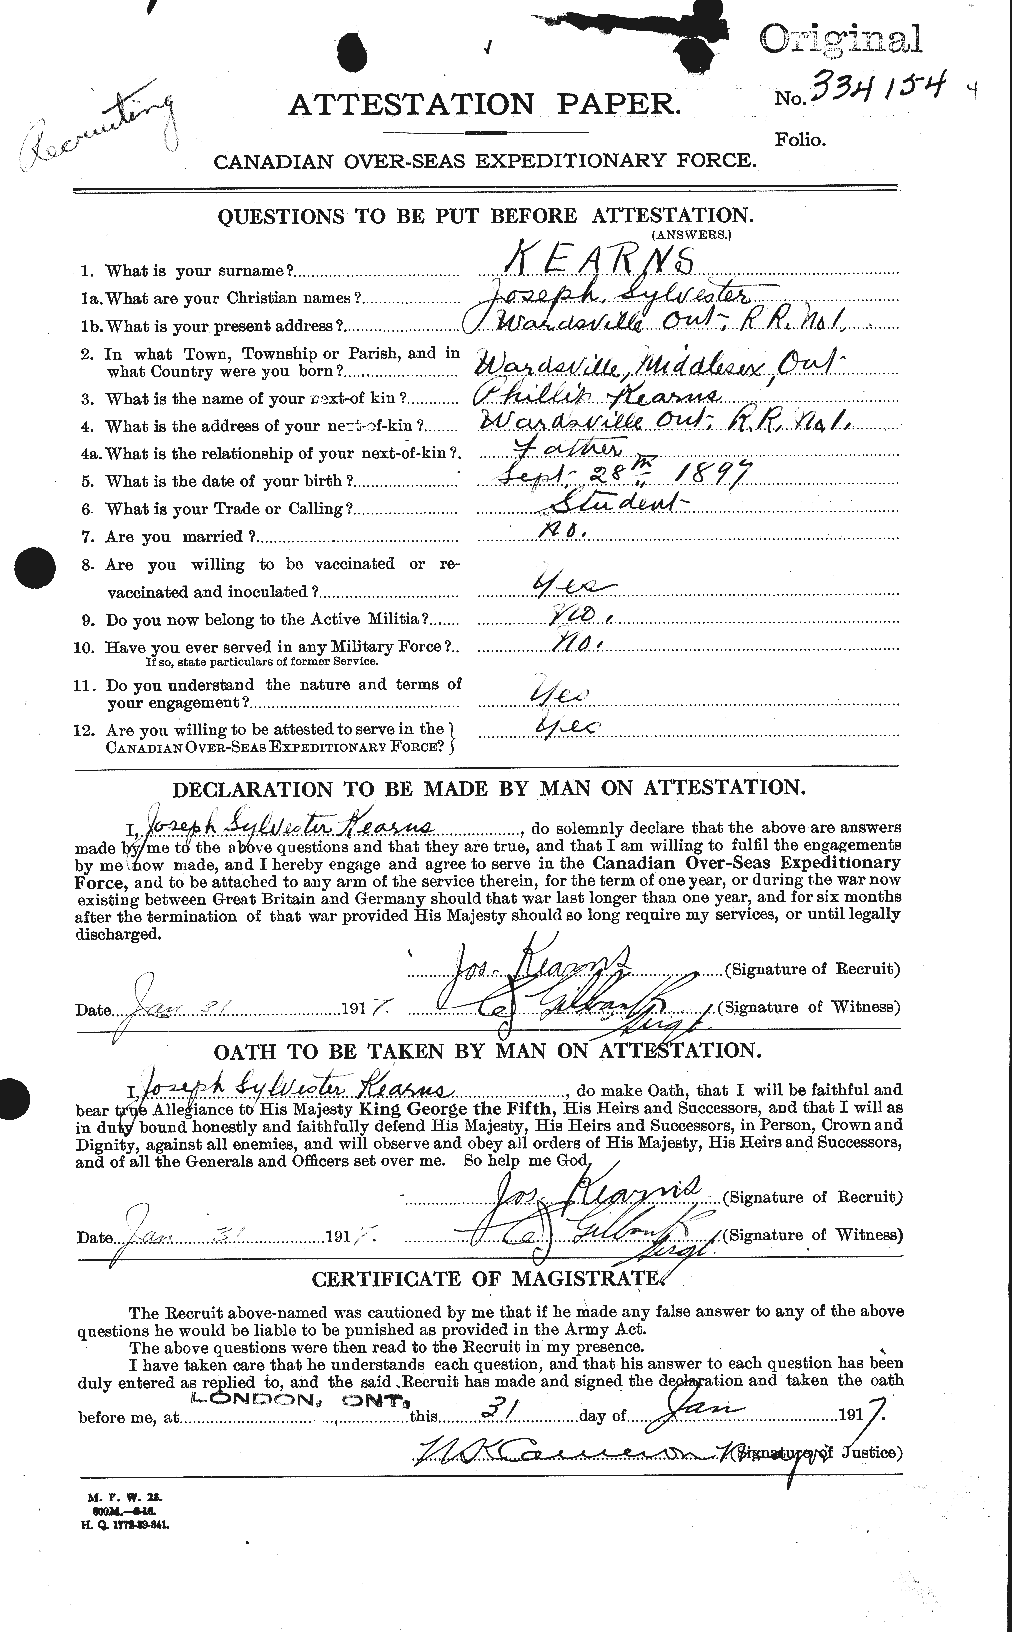 Original
No. 334154
Recruiting
ATTESTATION PAPER.
Folio.
CANADIAN OVER-SEAS EXPEDITIONARY FORCE.
QUESTIONS TO BE PUT BEFORE ATTESTATION.
(ANSWERS.)
1. What is your surname? KEARNS
1a. What are your Christian names? Joseph Sylvester
1b. What is your present address? Wardsville Ont. R.R. No 1.
2. In what Town, Township or Parish, and in
what Country were you born? Wardsville, Middlesex, Ont
3. What is the name of your next-of kin? Phillip Kearns
4. What is the address of your next-of-kin? Wardsville Ont. R.R. No 1.
4a. What is the relationship of your next-of-kin? Father
5. What is the date of your birth? Sept. 28th 1897
6. What is your Trade or Calling? Student
7. Are you married? No.
8. Are you willing to be vaccinated or re-
vaccinated and inoculated? Yes
9. Do you now belong to the Active Militia? No.
10. Have you ever served in any Military Force? No.
If so, state particulars of former Service.
11. Do you understand the nature and terms of
your engagement? Yes
12. Are you willing to be attested to serve in the
CANADIAN OVER-SEAS EXPEDITIONARY FORCE? Yes
DECLARATION TO BE MADE BY MAN ON ATTESTATION.
I, Joseph Sylvester Kearns, do solemnly declare that the above are answers
made by me to the above questions and that they are true, and that I am willing to fulfil the engagements
by me now made, and I hereby engage and agree to serve in the Canadian Over-Seas Expeditionary
Force, and to be attached to any arm of the service therein, for the term of one year, or during the war now
existing between Great Britain and Germany should that war last longer than one year, and for six months
after the termination of that war provided His Majesty should so long require my services, or until legally
discharged.
Jos. Kearns (Signature of Recruit)
Date Jan 31 1917. Gilbank Sergt. (Signature of Witness)
OATH TO BE TAKEN BY MAN ON ATTESTATION.
I, Joseph Sylvester Kearns, do make Oath, that I will be faithful and
bear true Allegiance to His Majesty King George the Fifth, His Heirs and Successors, and that I will as
in duty bound honestly and faithfully defend His Majesty, His Heirs and Successors, in Person, Crown and
Dignity, against all enemies, and will observe and obey all orders of His Majesty, His Heirs and Successors,
and of all the Generals and Officers set over me. So help me God.
Jos. Kearns (Signature of Recruit)
Date Jan 31 1917. Gilbank Sergt. (Signature of Witness)
CERTIFICATE OF MAGISTRATE.
The Recruit above-named was cautioned by me that if he made any false answer to any of the above
questions he would be liable to be punished as provided in the Army Act.
The above questions were then read to the Recruit in my presence.
I have taken care that he understands each question, and that his answer to each question has been
duly entered as replied to, and the said Recruit has made and signed the declaration and taken the oath
before me, at LONDON, ONT. this 31 day of Jan 1917.
Cameron Major (Signature of Justice)
M. F. W. 23.
H. Q. 1772-39-841.